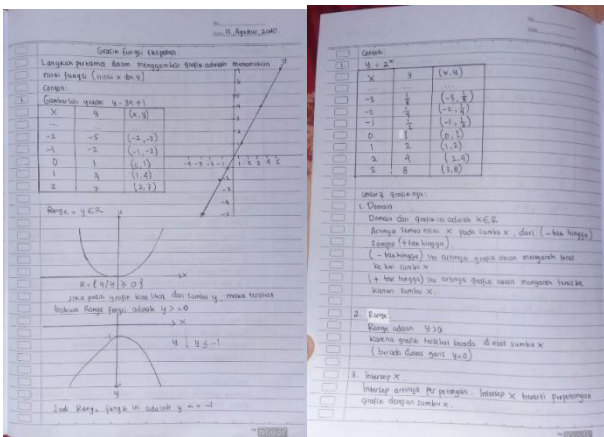 11, Agustus, 2020
Grafik fungsi Eksponen.
Langkah pertama dalam menggambar grafik adalah menentukan
nilai fungsi (nilai x dan y)
Contoh:
1. Gambarlah grafik y = 3x + 1
x y (x, y)
... ...
-2 -5 (-2, -5)
-1 -2 (-1, -2)
0 1 (0, 1)
1 4 (1, 4)
2 7 (2, 7)
Range = y ∈ R
R = { y / y ≥ 0 }
Jika pada grafik kita lihat dari sumbu y, maka terlihat
bahwa Range fungsi adalah y > = 0
x
y ≤ -1
y
Jadi Range fungsi ini adalah y < = -1
Contoh:
1. y = 2ˣ
x y (x, y)
... ...
-3 1/8 (-3, 1/8)
-2 1/4 (-2, 1/4)
-1 1/2 (-1, 1/2)
0 1 (0, 1)
1 2 (1, 2)
2 4 (2, 4)
3 8 (3, 8)
grafiknya:
1. Domain
Domain dari grafik ini adalah x ∈ R
Artinya semua nilai x pada sumbu x, dari (- tak hingga)
Sampai (+ tak hingga).
(- tak hingga) itu artinya grafik akan mengarah terus
ke kiri sumbu x
(+ tak hingga) itu artinya grafik akan mengarah terus ke
kanan sumbu x.
2. Range
Range adalah y > 0
Karena grafik tersebut berada di atas sumbu x
(berada diatas garis y = 0)
3. Intersep x
Intersep artinya perpotongan. Intersep x berarti perpotongan
grafik dengan sumbu x.